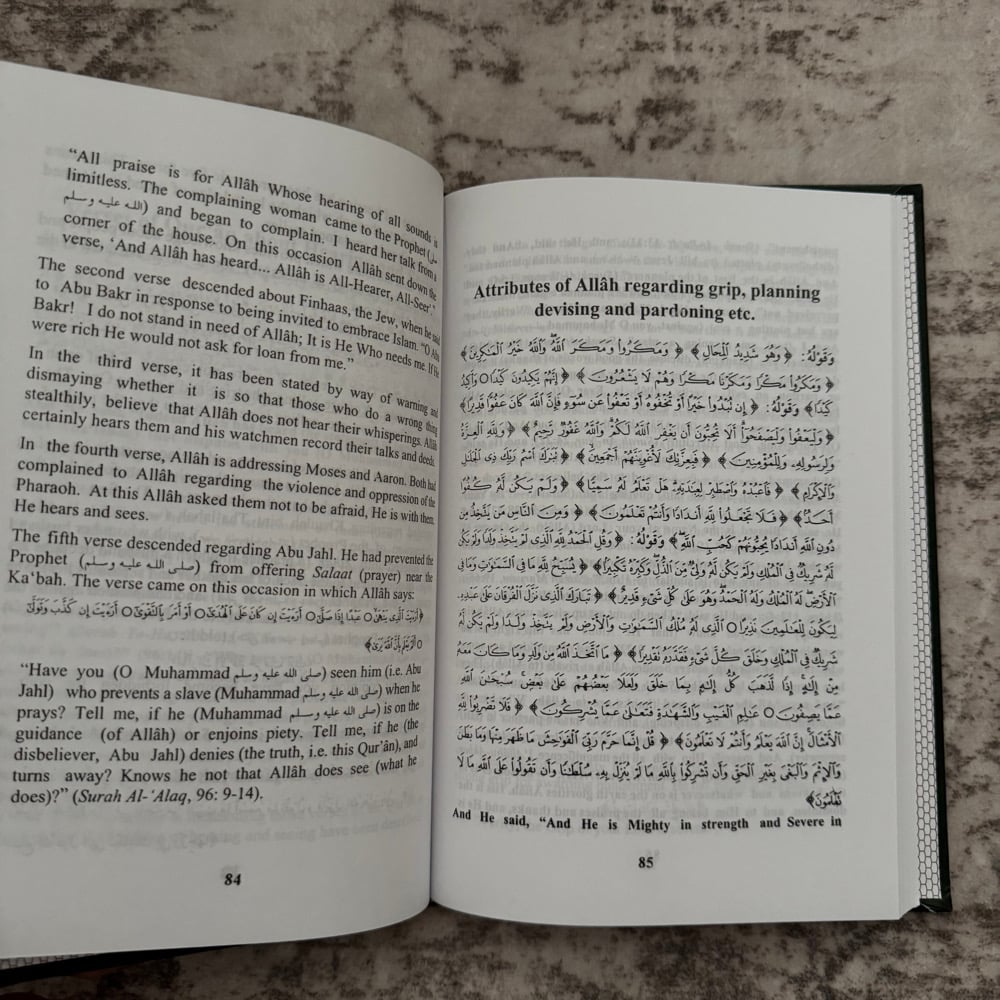 “All praise is for Allâh Whose hearing of all sounds is
limitless. The complaining woman came to the Prophet (صلى
الله عليه وسلم) and began to complain. I heard her talk from a
corner of the house. On this occasion Allâh sent down the
verse, ‘And Allâh has heard... Allâh is All-Hearer, All-Seer’.”
The second verse descended about Finhaas, the Jew, when he said
to Abu Bakr in response to being invited to embrace Islam. “O Abu
Bakr! I do not stand in need of Allâh; It is He Who needs me. If He
were rich He would not ask for loan from me.”
In the third verse, it has been stated by way of warning and
dismaying whether it is so that those who do a wrong thing
stealthily, believe that Allâh does not hear their whisperings. Allâh
certainly hears them and his watchmen record their talks and deeds.
In the fourth verse, Allâh is addressing Moses and Aaron. Both had
complained to Allâh regarding the violence and oppression of the
Pharaoh. At this Allâh asked them not to be afraid, He is with them,
He hears and sees.
The fifth verse descended regarding Abu Jahl. He had prevented the
Prophet (صلى الله عليه وسلم) from offering Salaat (prayer) near the
Ka‘bah. The verse came on this occasion in which Allâh says:
﴿أَرَءَيْتَ ٱلَّذِى يَنْهَىٰ ○ عَبْدًا إِذَا صَلَّىٰٓ ○ أَرَءَيْتَ إِن كَانَ عَلَى ٱلْهُدَىٰٓ ○ أَوْ أَمَرَ بِٱلتَّقْوَىٰٓ ○ أَرَءَيْتَ إِن كَذَّبَ وَتَوَلَّىٰٓ
○ أَلَمْ يَعْلَم بِأَنَّ ٱللَّهَ يَرَىٰ﴾
“Have you (O Muhammad صلى الله عليه وسلم) seen him (i.e. Abu
Jahl) who prevents a slave (Muhammad صلى الله عليه وسلم) when he
prays? Tell me, if he (Muhammad صلى الله عليه وسلم) is on the
guidance (of Allâh) or enjoins piety. Tell me, if he (the
disbeliever, Abu Jahl) denies (the truth, i.e. this Qur’ân), and
turns away? Knows he not that Allâh does see (what he
does)?” (Surah Al-‘Alaq, 96: 9-14).
84
Attributes of Allâh regarding grip, planning
devising and pardoning etc.
وَقَوْلُهُ: ﴿وَهُوَ شَدِيدُ ٱلْمِحَالِ﴾ ﴿وَمَكَرُوا۟ وَمَكَرَ ٱللَّهُ وَٱللَّهُ خَيْرُ ٱلْمَٰكِرِينَ﴾
﴿وَمَكَرُوا۟ مَكْرًا وَمَكَرْنَا مَكْرًا وَهُمْ لَا يَشْعُرُونَ﴾ ﴿إِنَّهُمْ يَكِيدُونَ كَيْدًا ○ وَأَكِيدُ
كَيْدًا﴾ وَقَوْلُهُ: ﴿إِن تُبْدُوا۟ خَيْرًا أَوْ تُخْفُوهُ أَوْ تَعْفُوا۟ عَن سُوٓءٍ فَإِنَّ ٱللَّهَ كَانَ عَفُوًّا قَدِيرًا﴾
﴿وَلْيَعْفُوا۟ وَلْيَصْفَحُوٓا۟ أَلَا تُحِبُّونَ أَن يَغْفِرَ ٱللَّهُ لَكُمْ وَٱللَّهُ غَفُورٌ رَّحِيمٌ﴾ ﴿وَلِلَّهِ ٱلْعِزَّةُ
وَلِرَسُولِهِۦ وَلِلْمُؤْمِنِينَ﴾ ﴿فَبِعِزَّتِكَ لَأُغْوِيَنَّهُمْ أَجْمَعِينَ﴾ ﴿تَبَٰرَكَ ٱسْمُ رَبِّكَ ذِى ٱلْجَلَٰلِ
وَٱلْإِكْرَامِ﴾ ﴿فَٱعْبُدْهُ وَٱصْطَبِرْ لِعِبَٰدَتِهِۦ هَلْ تَعْلَمُ لَهُۥ سَمِيًّا﴾ ﴿وَلَمْ يَكُن لَّهُۥ كُفُوًا
أَحَدٌۢ﴾ ﴿فَلَا تَجْعَلُوا۟ لِلَّهِ أَندَادًا وَأَنتُمْ تَعْلَمُونَ﴾ ﴿وَمِنَ ٱلنَّاسِ مَن يَتَّخِذُ مِن
دُونِ ٱللَّهِ أَندَادًا يُحِبُّونَهُمْ كَحُبِّ ٱللَّهِ﴾ وَقَوْلُهُ: ﴿وَقُلِ ٱلْحَمْدُ لِلَّهِ ٱلَّذِى لَمْ يَتَّخِذْ وَلَدًا وَلَمْ يَكُن
لَّهُۥ شَرِيكٌ فِى ٱلْمُلْكِ وَلَمْ يَكُن لَّهُۥ وَلِىٌّ مِّنَ ٱلذُّلِّ وَكَبِّرْهُ تَكْبِيرًۢا﴾ ﴿يُسَبِّحُ لِلَّهِ مَا فِى ٱلسَّمَٰوَٰتِ وَمَا فِى
ٱلْأَرْضِ لَهُ ٱلْمُلْكُ وَلَهُ ٱلْحَمْدُ وَهُوَ عَلَىٰ كُلِّ شَىْءٍ قَدِيرٌ﴾ ﴿تَبَارَكَ ٱلَّذِى نَزَّلَ ٱلْفُرْقَانَ عَلَىٰ عَبْدِهِۦ
لِيَكُونَ لِلْعَٰلَمِينَ نَذِيرًا ○ ٱلَّذِى لَهُۥ مُلْكُ ٱلسَّمَٰوَٰتِ وَٱلْأَرْضِ وَلَمْ يَتَّخِذْ وَلَدًا وَلَمْ يَكُن لَّهُۥ
شَرِيكٌ فِى ٱلْمُلْكِ وَخَلَقَ كُلَّ شَىْءٍ فَقَدَّرَهُۥ تَقْدِيرًا﴾ ﴿مَا ٱتَّخَذَ ٱللَّهُ مِن وَلَدٍ وَمَا كَانَ مَعَهُۥ
مِنْ إِلَٰهٍ إِذًا لَّذَهَبَ كُلُّ إِلَٰهٍۭ بِمَا خَلَقَ وَلَعَلَا بَعْضُهُمْ عَلَىٰ بَعْضٍ سُبْحَٰنَ ٱللَّهِ
عَمَّا يَصِفُونَ ○ عَٰلِمِ ٱلْغَيْبِ وَٱلشَّهَٰدَةِ فَتَعَٰلَىٰ عَمَّا يُشْرِكُونَ﴾ ﴿فَلَا تَضْرِبُوا۟ لِلَّهِ
ٱلْأَمْثَالَ إِنَّ ٱللَّهَ يَعْلَمُ وَأَنتُمْ لَا تَعْلَمُونَ﴾ ﴿قُلْ إِنَّمَا حَرَّمَ رَبِّىَ ٱلْفَوَٰحِشَ مَا ظَهَرَ مِنْهَا وَمَا بَطَنَ
وَٱلْإِثْمَ وَٱلْبَغْىَ بِغَيْرِ ٱلْحَقِّ وَأَن تُشْرِكُوا۟ بِٱللَّهِ مَا لَمْ يُنَزِّلْ بِهِۦ سُلْطَٰنًا وَأَن تَقُولُوا۟ عَلَى ٱللَّهِ مَا لَا
تَعْلَمُونَ﴾
And He said, “And He is Mighty in strength and Severe in
85